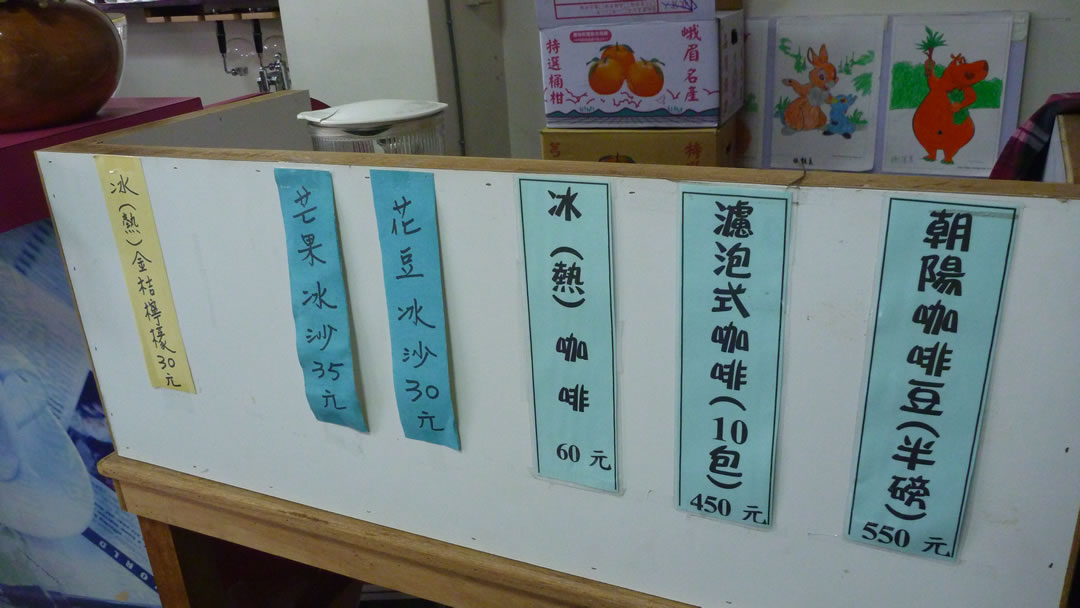 冰(熱)金桔檸檬30元
芒果冰沙35元
花豆冰沙30元
冰(熱)咖啡
60元
濾泡式咖啡(10包)
450元
朝陽咖啡豆(半磅)
550元
特選桶柑
峨眉名產
WORLD